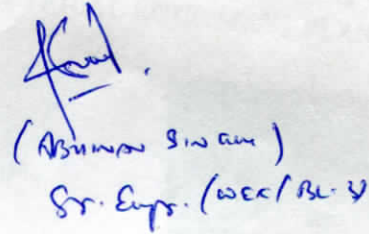 (ABHINAV SINGH)
Sr. Engr. (WEK/BL-3)